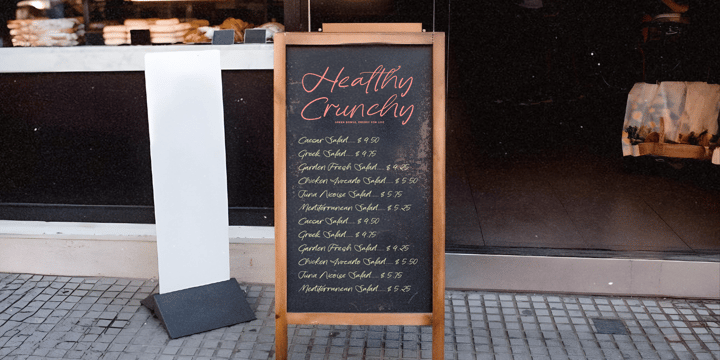 Healthy
Crunchy
Caesar Salad.... $ 4.50
Greek Salad.... $ 4.75
Garden Fresh Salad.... $ 4.25
Chicken Avocado Salad.... $ 5.50
Tuna Nicoise Salad.... $ 5.75
Mediterranean Salad.... $ 5.25
Caesar Salad.... $ 4.50
Greek Salad.... $ 4.75
Garden Fresh Salad.... $ 4.25
Chicken Avocado Salad.... $ 5.50
Tuna Nicoise Salad.... $ 5.75
Mediterranean Salad.... $ 5.25